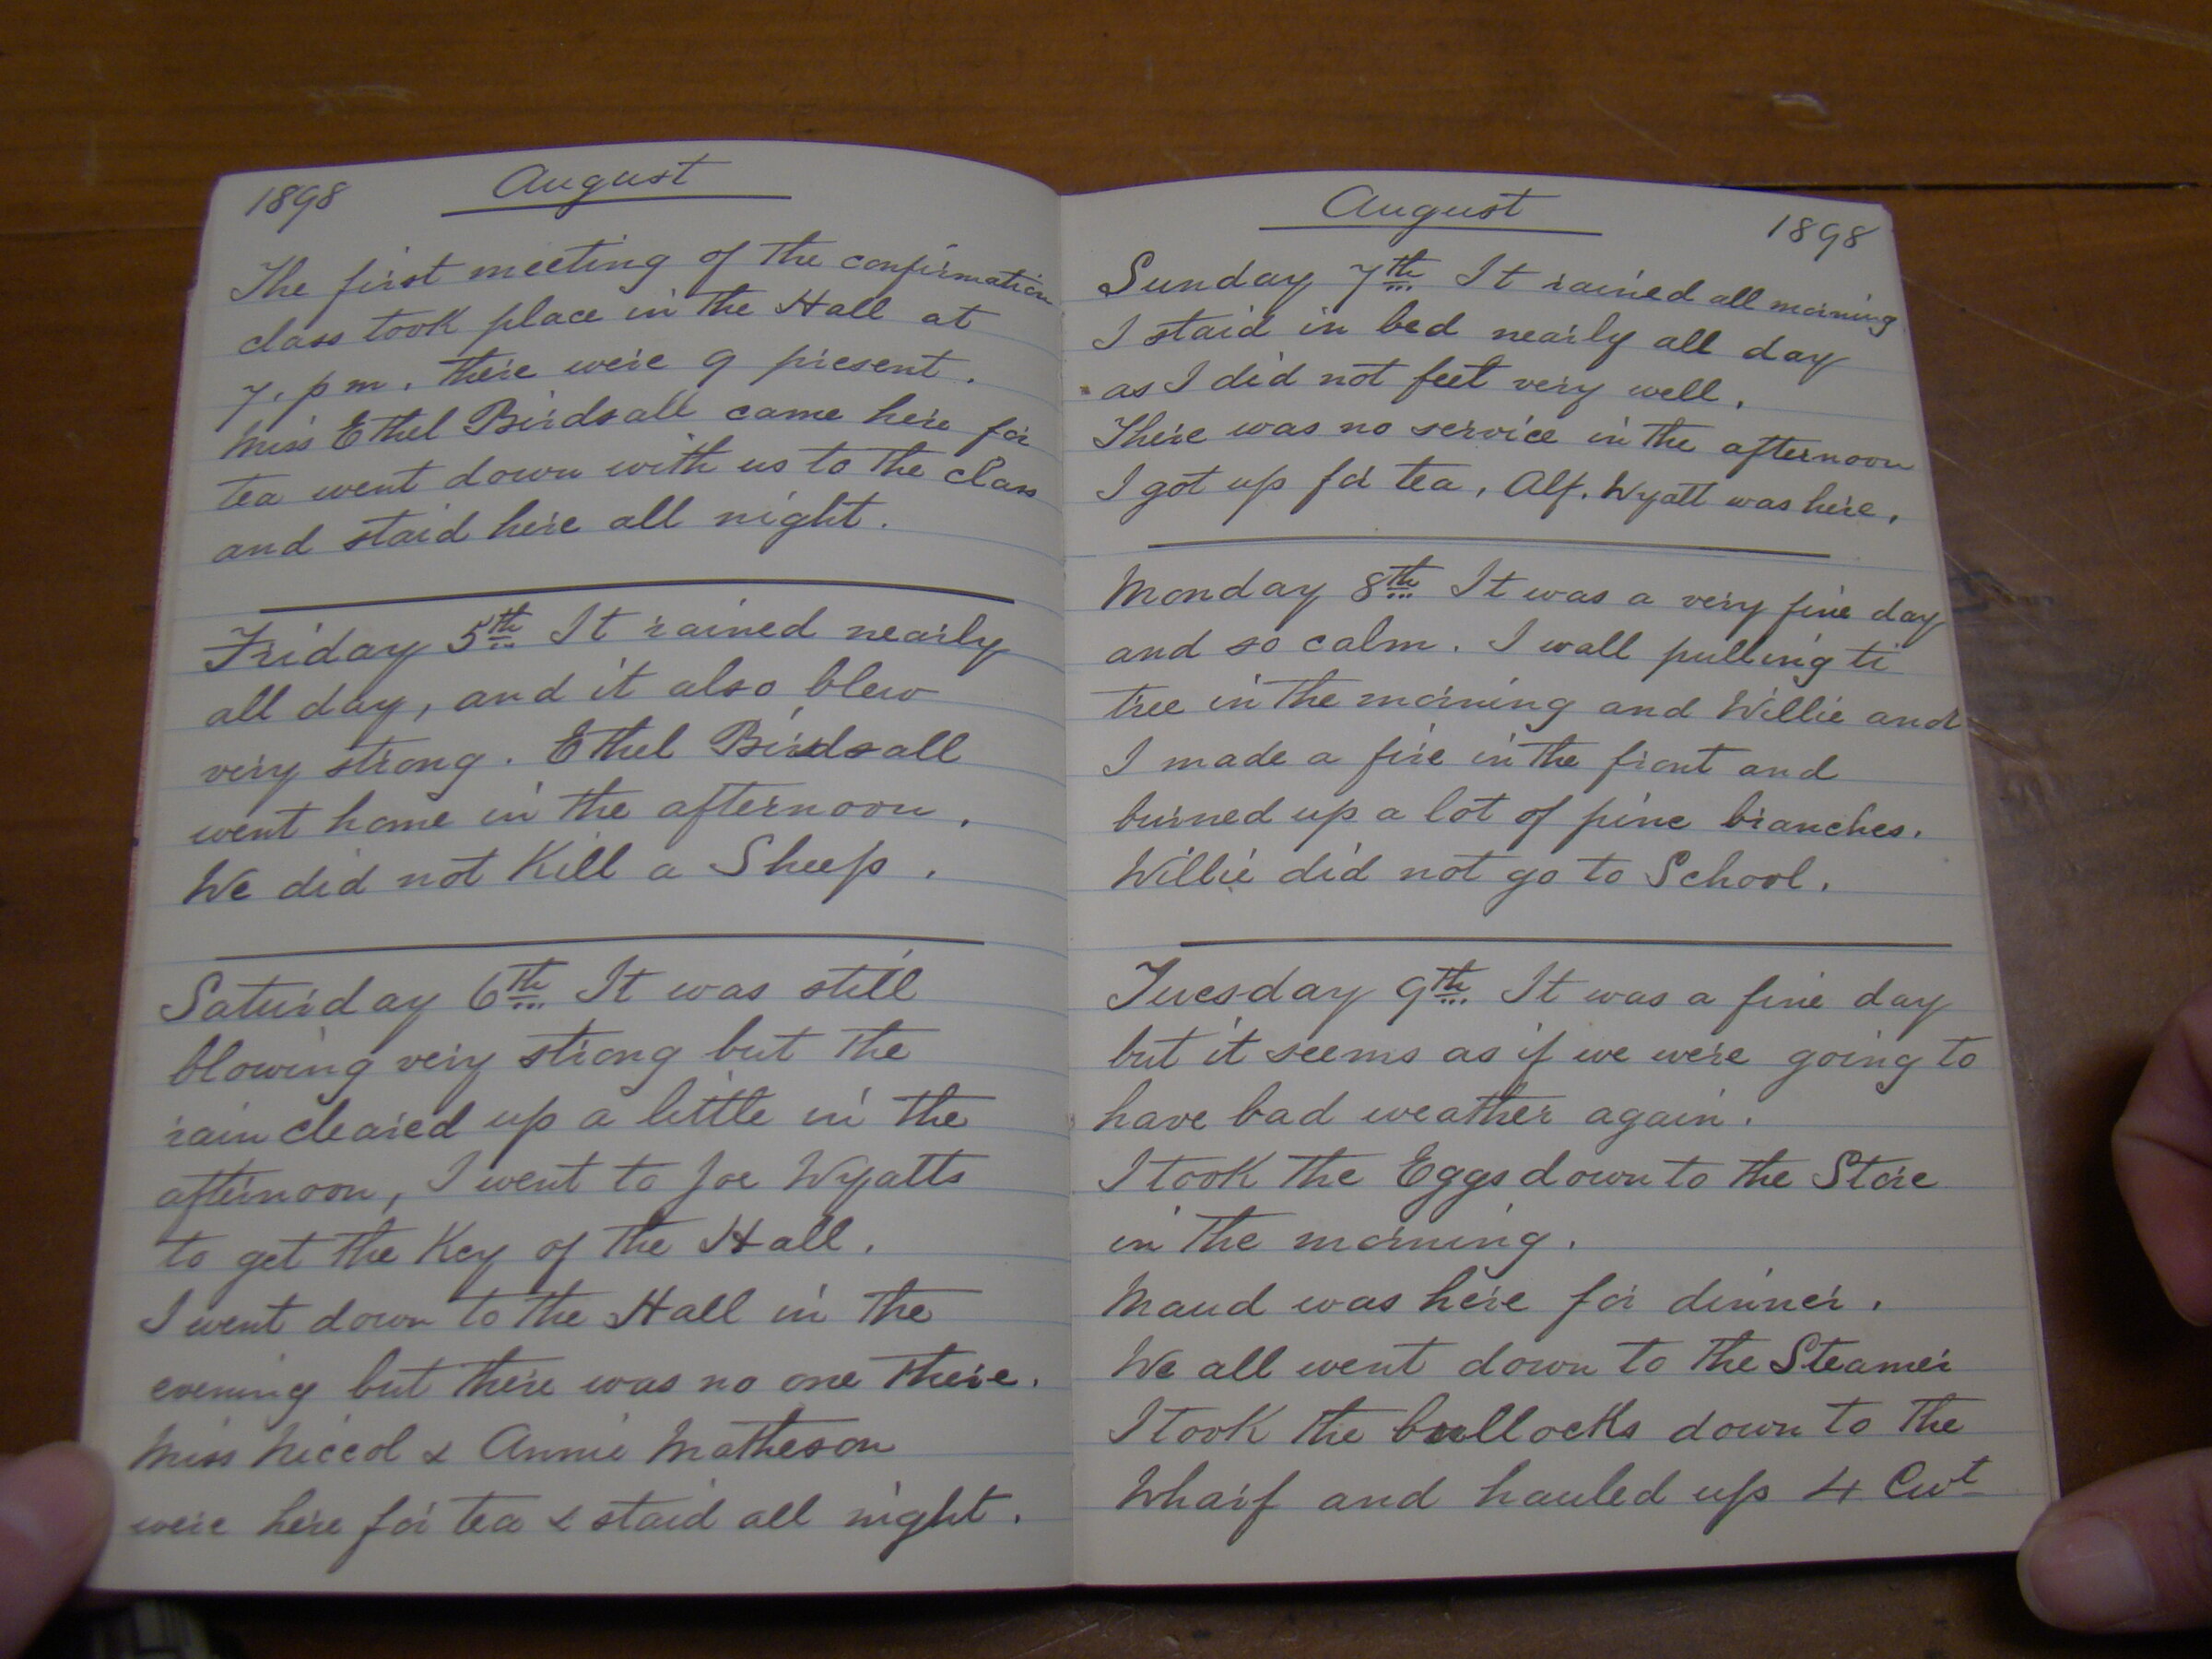 1898 August
The first meeting of the confirmation
class took place in the Hall at
7. p m. there were 9 present.
Miss Ethel Birdsall came here for
tea went down with us to the class
and staid here all night.
Friday 5th It rained nearly
all day, and it also blew
very strong. Ethel Birdsall
went home in the afternoon.
We did not Kill a Sheep.
Saturday 6th It was still
blowing very strong but the
rain cleared up a little in the
afternoon, I went to Joe Wyatts
to get the Key of the Hall.
I went down to the Hall in the
evening but there was no one there.
Miss Niccol & Annie Matheson
were here for tea & staid all night.
August 1898
Sunday 7th It rained all morning
I staid in bed nearly all day
as I did not feel very well.
There was no service in the afternoon
I got up for tea, Alf. Wyatt was here.
Monday 8th It was a very fine day
and so calm. I wall pulling ti
tree in the morning and Willie and
I made a fire in the front and
burned up a lot of pine branches.
Willie did not go to School.
Tuesday 9th It was a fine day
but it seems as if we were going to
have bad weather again.
I took the Eggs down to the Store
in the morning.
Maud was here for dinner.
We all went down to the Steamer
I took the bullocks down to the
Wharf and hauled up 4 Cwt